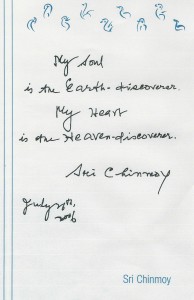 My Soul
is the Earth-discoverer.
My Heart
is the Heaven-discoverer.
Sri Chinmoy
July
2006
Sri Chinmoy